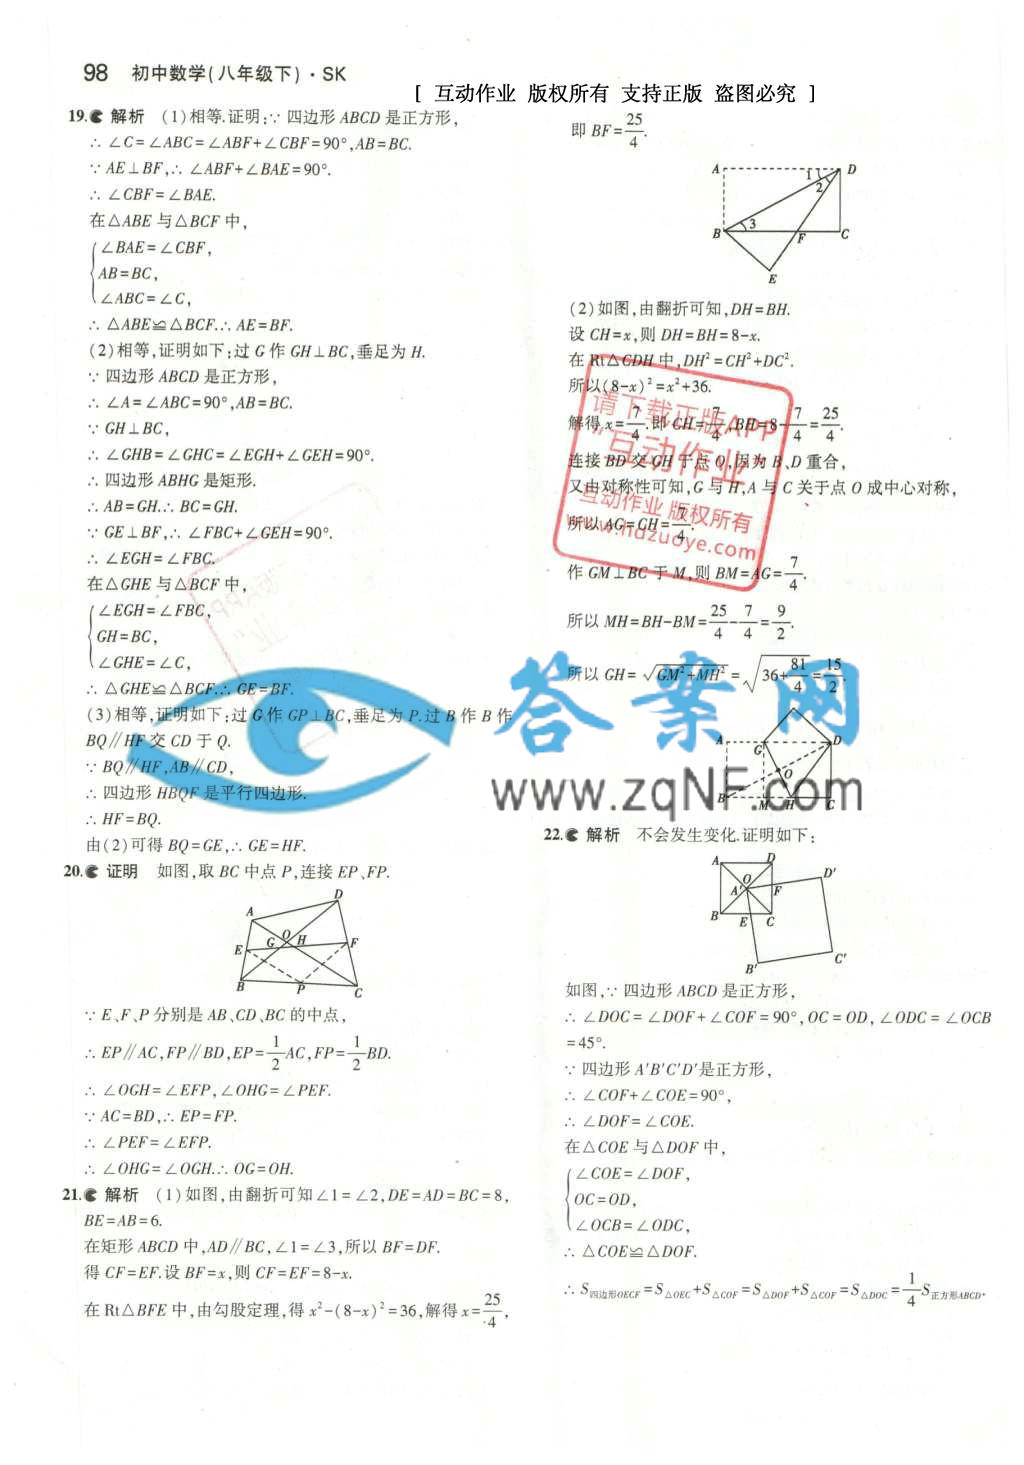 98 初中数学(八年级下)·SK
[ 互动作业 版权所有 支持正版 盗图必究 ]
19. 解析 (1)相等.证明:∵四边形ABCD是正方形,
∴∠C=∠ABC=∠ABF+∠CBF=90°,AB=BC.
∵AE⊥BF,∴∠ABF+∠BAE=90°.
∴∠CBF=∠BAE.
在△ABE与△BCF中,
∠BAE=∠CBF,
AB=BC,
∠ABC=∠C,
∴△ABE≌△BCF.∴AE=BF.
(2)相等,证明如下:过G作GH⊥BC,垂足为H.
∵四边形ABCD是正方形,
∴∠A=∠ABC=90°,AB=BC.
∵GH⊥BC,
∴∠GHB=∠GHC=∠EGH+∠GEH=90°.
∴四边形ABHG是矩形.
∴AB=GH.∴BC=GH.
∵GE⊥BF,∴∠FBC+∠GEH=90°.
∴∠EGH=∠FBC.
在△GHE与△BCF中,
∠EGH=∠FBC,
GH=BC,
∠GHE=∠C,
∴△GHE≌△BCF.∴GE=BF.
(3)相等,证明如下:过G作GP⊥BC,垂足为P.过B作B作
BQ∥HF交CD于Q.
∵BQ∥HF,AB∥CD,
∴四边形HBQF是平行四边形.
∴HF=BQ.
由(2)可得BQ=GE,∴GE=HF.
20. 证明 如图,取BC中点P,连接EP、FP.
D
A
O
G H
E F
B P C
∵E、F、P分别是AB、CD、BC的中点,
∴EP∥AC,FP∥BD,EP=1/2AC,FP=1/2BD.
∴∠OGH=∠EFP,∠OHG=∠PEF.
∵AC=BD,∴EP=FP.
∴∠PEF=∠EFP.
∴∠OHG=∠OGH.∴OG=OH.
21. 解析 (1)如图,由翻折可知∠1=∠2,DE=AD=BC=8,
BE=AB=6.
在矩形ABCD中,AD∥BC,∠1=∠3,所以BF=DF.
得CF=EF.设BF=x,则CF=EF=8-x.
在Rt△BFE中,由勾股定理,得x²-(8-x)²=36,解得x=25/4,
即BF=25/4.
A 1 D
2
3
B F C
E
(2)如图,由翻折可知,DH=BH.
设CH=x,则DH=BH=8-x.
在Rt△CDH中,DH²=CH²+DC².
所以(8-x)²=x²+36.
解得x=7/4.即CH=7/4,BH=8-7/4=25/4.
连接BD交GH于点O,因为B、D重合,
又由对称性可知,G与H,A与C关于点O成中心对称,
所以AG=CH=7/4.
作GM⊥BC于M,则BM=AG=7/4.
所以MH=BH-BM=25/4-7/4=9/2.
所以GH=√(GM²+MH²)=√(36+81/4)=15/2.
A G D
O
B M H C
请下载正版APP
"互动作业"
互动作业 版权所有
www.hdzuoye.com
答案网
www.zqNF.com
22. 解析 不会发生变化.证明如下:
A D
D′
O
A′ F
B E C
B′ C′
如图,∵四边形ABCD是正方形,
∴∠DOC=∠DOF+∠COF=90°,OC=OD,∠ODC=∠OCB
=45°.
∵四边形A′B′C′D′是正方形,
∴∠COF+∠COE=90°,
∴∠DOF=∠COE.
在△COE与△DOF中,
∠COE=∠DOF,
OC=OD,
∠OCB=∠ODC,
∴△COE≌△DOF.
∴S四边形OECF=S△OEC+S△COF=S△DOF+S△COF=S△DOC=1/4S正方形ABCD.